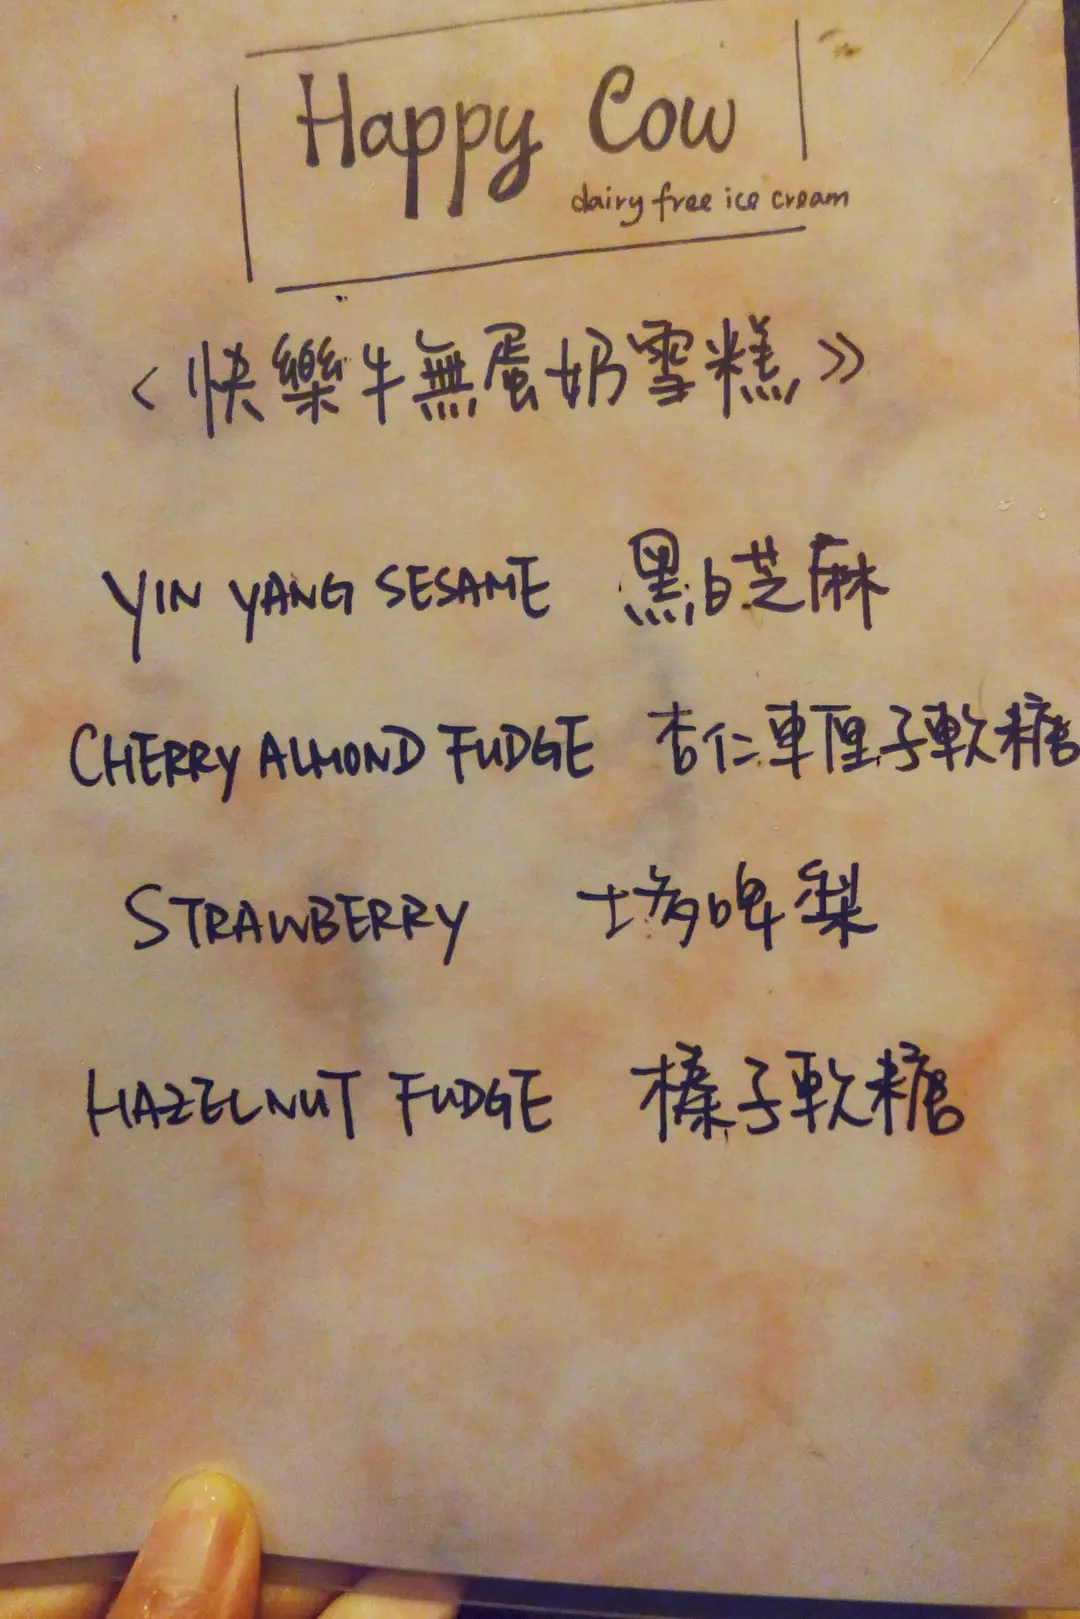 Happy Cow
dairy free ice cream
<快樂牛無蛋奶雪糕》
YIN YANG SESAME 黑白芝麻
CHERRY ALMOND FUDGE 杏仁車厘子軟糖
STRAWBERRY 士多啤梨
HAZELNUT FUDGE 榛子軟糖